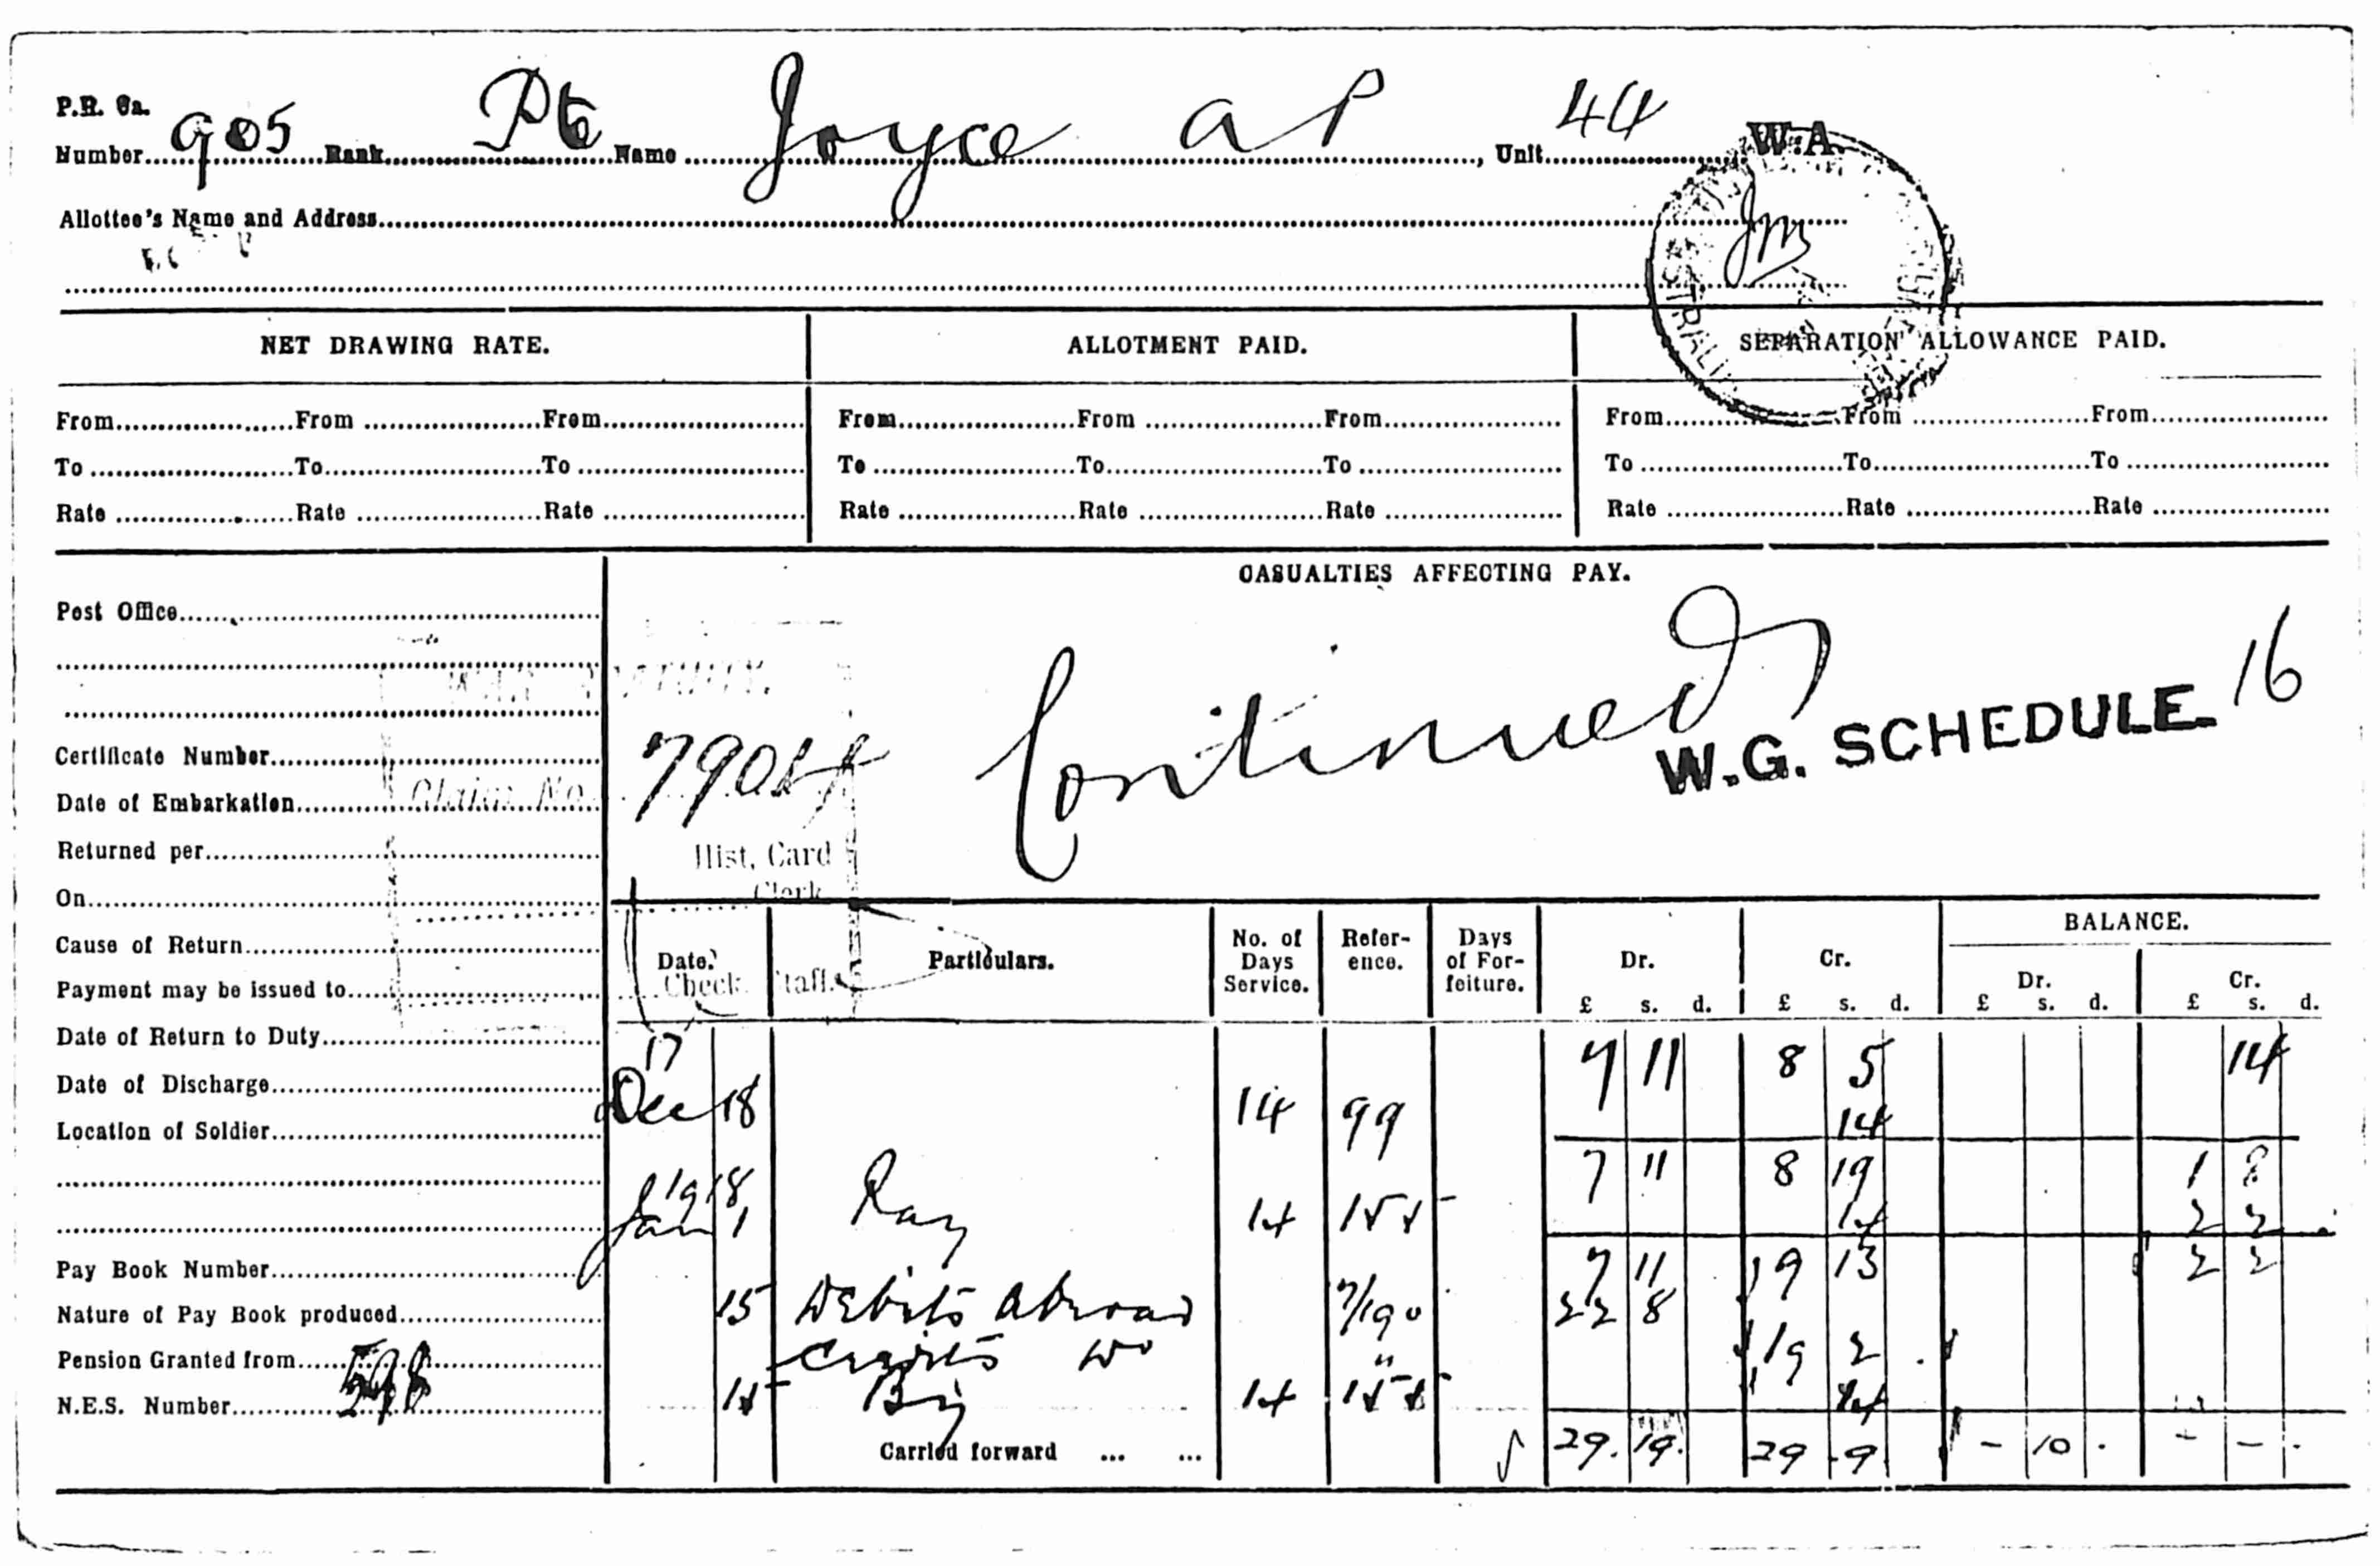 P.R. 6a.
Number 905 Rank Pte Name Joyce A P, Unit 44
W.A.
Allottee's Name and Address
NET DRAWING RATE. ALLOTMENT PAID. SEPARATION ALLOWANCE PAID.
From From From From From From From From From
To To To To To To To To To
Rate Rate Rate Rate Rate Rate Rate Rate Rate
CASUALTIES AFFECTING PAY.
Post Office
Continued
W.G. SCHEDULE 16
Certificate Number
Date of Embarkation
Claim No.
Returned per
Hist. Card
Clerk
On
Cause of Return
Payment may be issued to
Date of Return to Duty
Date of Discharge
Location of Soldier
Pay Book Number
Nature of Pay Book produced
Pension Granted from
N.E.S. Number
Date. Particulars. No. of Days Service. Reference. Days of Forfeiture. Dr. Cr. BALANCE.
Check Staff
Dr. Cr.
£ s. d. £ s. d. £ s. d. £ s. d.
17 7 11 8 5 14
Dec 18 14 99 14
7 11 8 19 1 8
1918
Jan 1 Pay 14 14 2 2
7 11 9 13 2 2
15 Debits Abroad 7/190 22 8
Credits Do " 19 2
15 By 14 14
Carried forward ... ... 29. 19. 29 9 - 10 . - - .